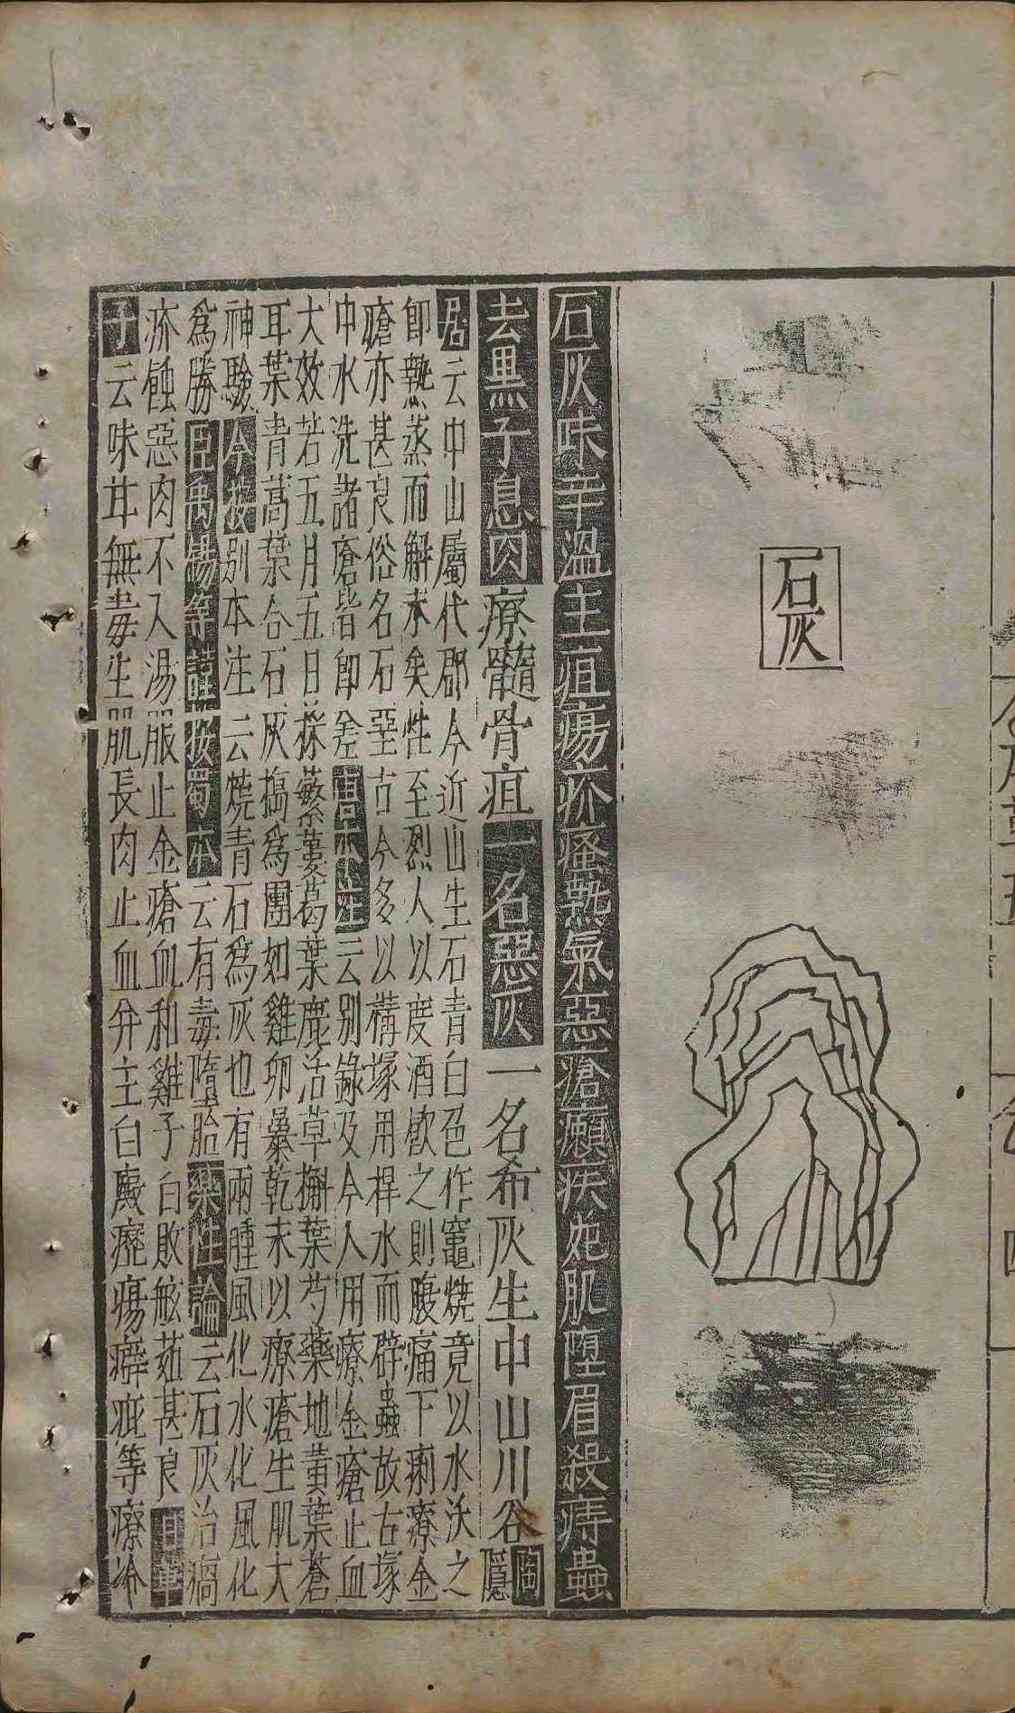 石灰
石灰味辛温主疽瘍疥瘙熱氣惡瘡癩疾死肌墮眉殺痔蟲
去黒子息肉療髓骨疽一名惡灰一名希灰生中山川谷陶隱
居云中山屬代郡今近山生石青白色作竈燒竟以水沃之
即熱蒸而解末矣性至烈人以度酒飲之則腹痛下痢療金
瘡亦甚良俗名石堊古今多以構塚用捍水而辟蟲故古塚
中水洗諸瘡皆即差唐本注云别録及今人用療金瘡止血
大效若五月五日採蘩蔞葛葉鹿活草槲葉芍藥地黄葉蒼
耳葉青蒿葉合石灰搗爲團如雞卵曝乾末以療瘡生肌大
神驗今按别本注云燒青石爲灰也有兩種風化水化風化
爲勝臣禹錫等謹按蜀本云有毒墮胎藥性論云石灰治瘑
疥蝕惡肉不入湯服止金瘡血和雞子白敗船茹甚良日華
子云味甘無毒生肌長肉止血并主白癜癧瘍瘢疵等療冷